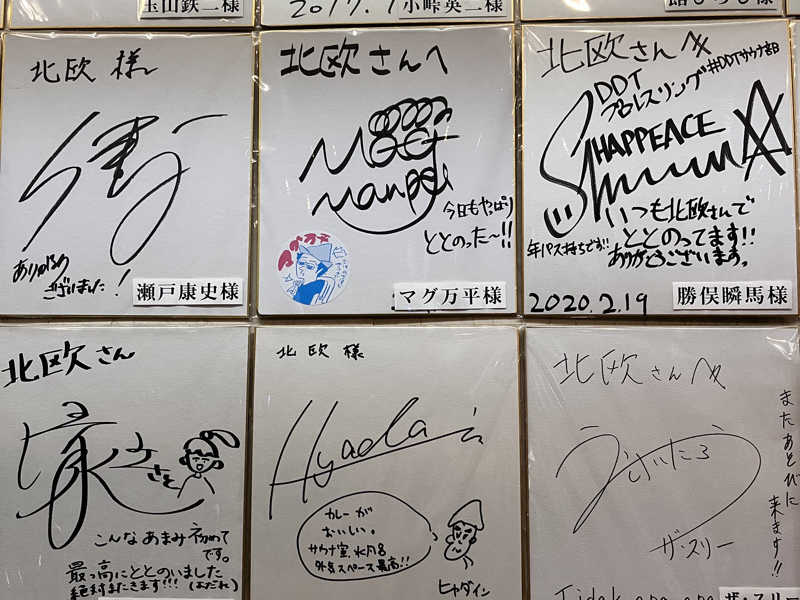 玉山鉄二様
2017.
小峠英二様
北欧 様
ありがとう
ございました!
瀬戸康史様
北欧さんへ
今日もやっぱり
ととのった〜!!
マグ万平様
北欧さんへ
DDT
プロレスリング
#DDTサウナ部
HAPPEACE
いつも北欧さんで
ととのってます!!
ありがとうございます。
年パス持ちです!!
2020.2.19
勝俣瞬馬様
北欧さん
こんなあまみ初めて
です。
最っ高にととのいました
絶対またきます!!!(よだれ)
北欧 様
Hyadain
カレーが
おいしい。
サウナ室、水風呂
外気スペース最高!!
ヒャダイン
北欧さんへ
またあそびに
来ます!!
ザ・スリー
Tidak apa apa
ザ・スリー